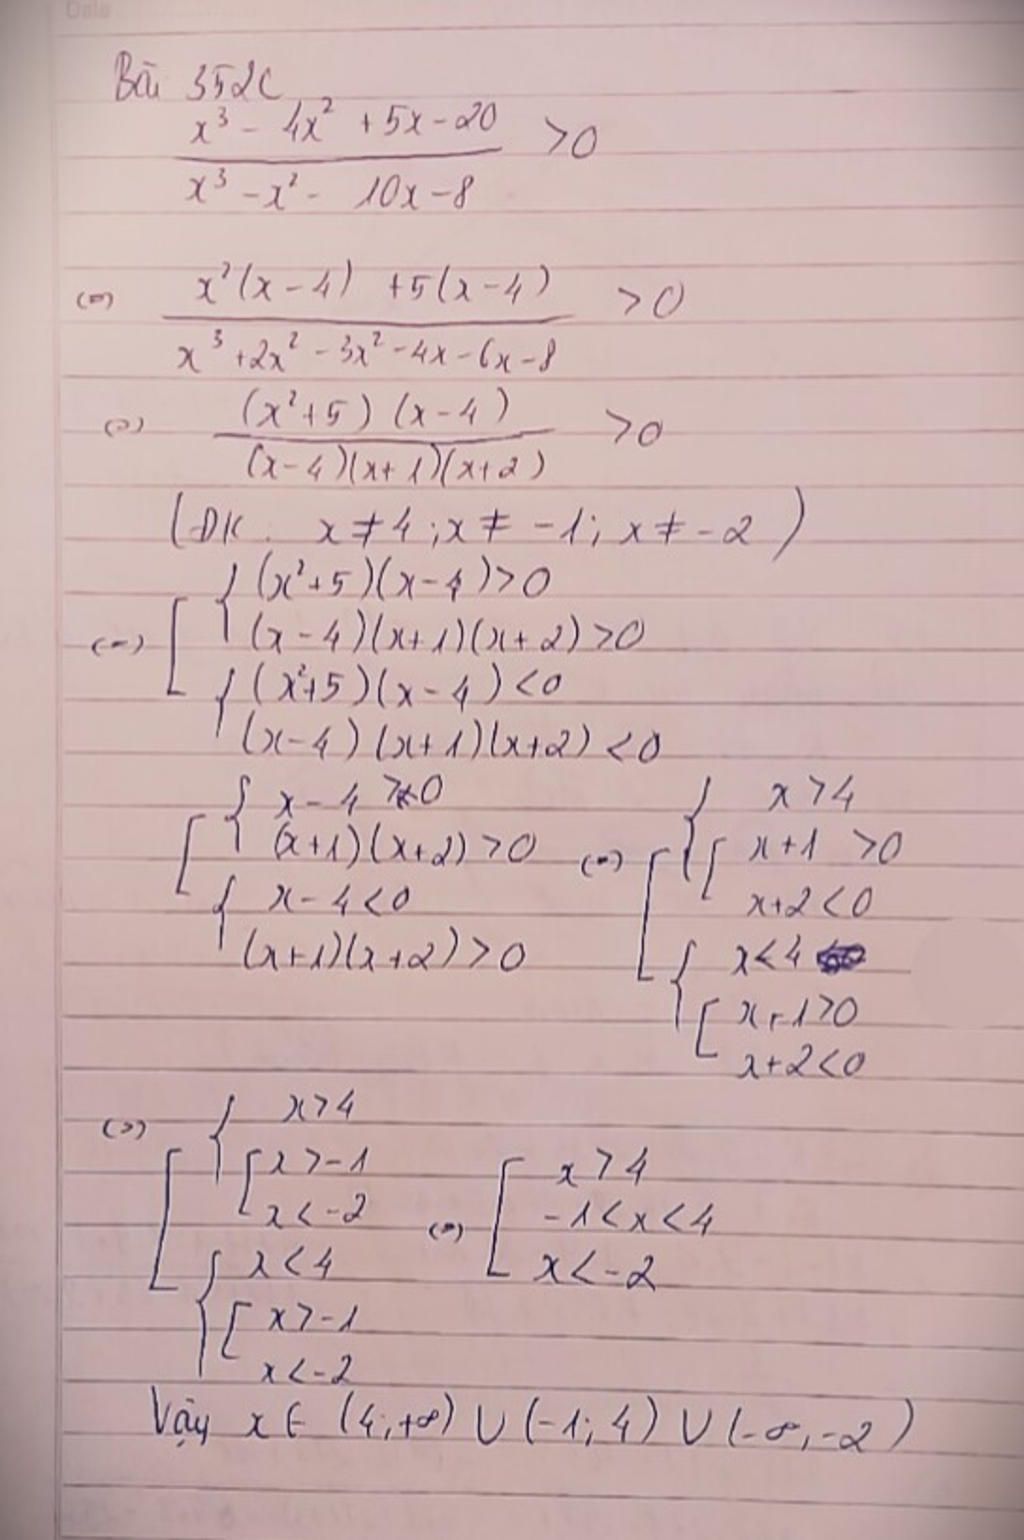 Bài 352C
x³ - 4x² + 5x - 20
>0
x³ - x² - 10x - 8
(=) x²(x - 4) + 5(x - 4) >0
x³ + 2x² - 3x² - 4x - 6x - 8
(=) (x² + 5) (x - 4) >0
(x - 4)(x + 1)(x + 2)
(ĐK: x ≠ 4; x ≠ -1; x ≠ -2)
(x² + 5)(x - 4) > 0
(=) (x - 4)(x + 1)(x + 2) > 0
(x² + 5)(x - 4) < 0
(x - 4)(x + 1)(x + 2) < 0
x - 4 > 0
(x + 1)(x + 2) > 0
x - 4 < 0
(x + 1)(x + 2) > 0
(=) x > 4
x + 1 > 0
x + 2 < 0
x < 4
x + 1 > 0
x + 2 < 0
(=) x > 4
x > -1
x < -2
x < 4
x > -1
x < -2
(=) x > 4
-1 < x < 4
x < -2
Vậy x ∈ (4; +∞) ∪ (-1; 4) ∪ (-∞, -2)